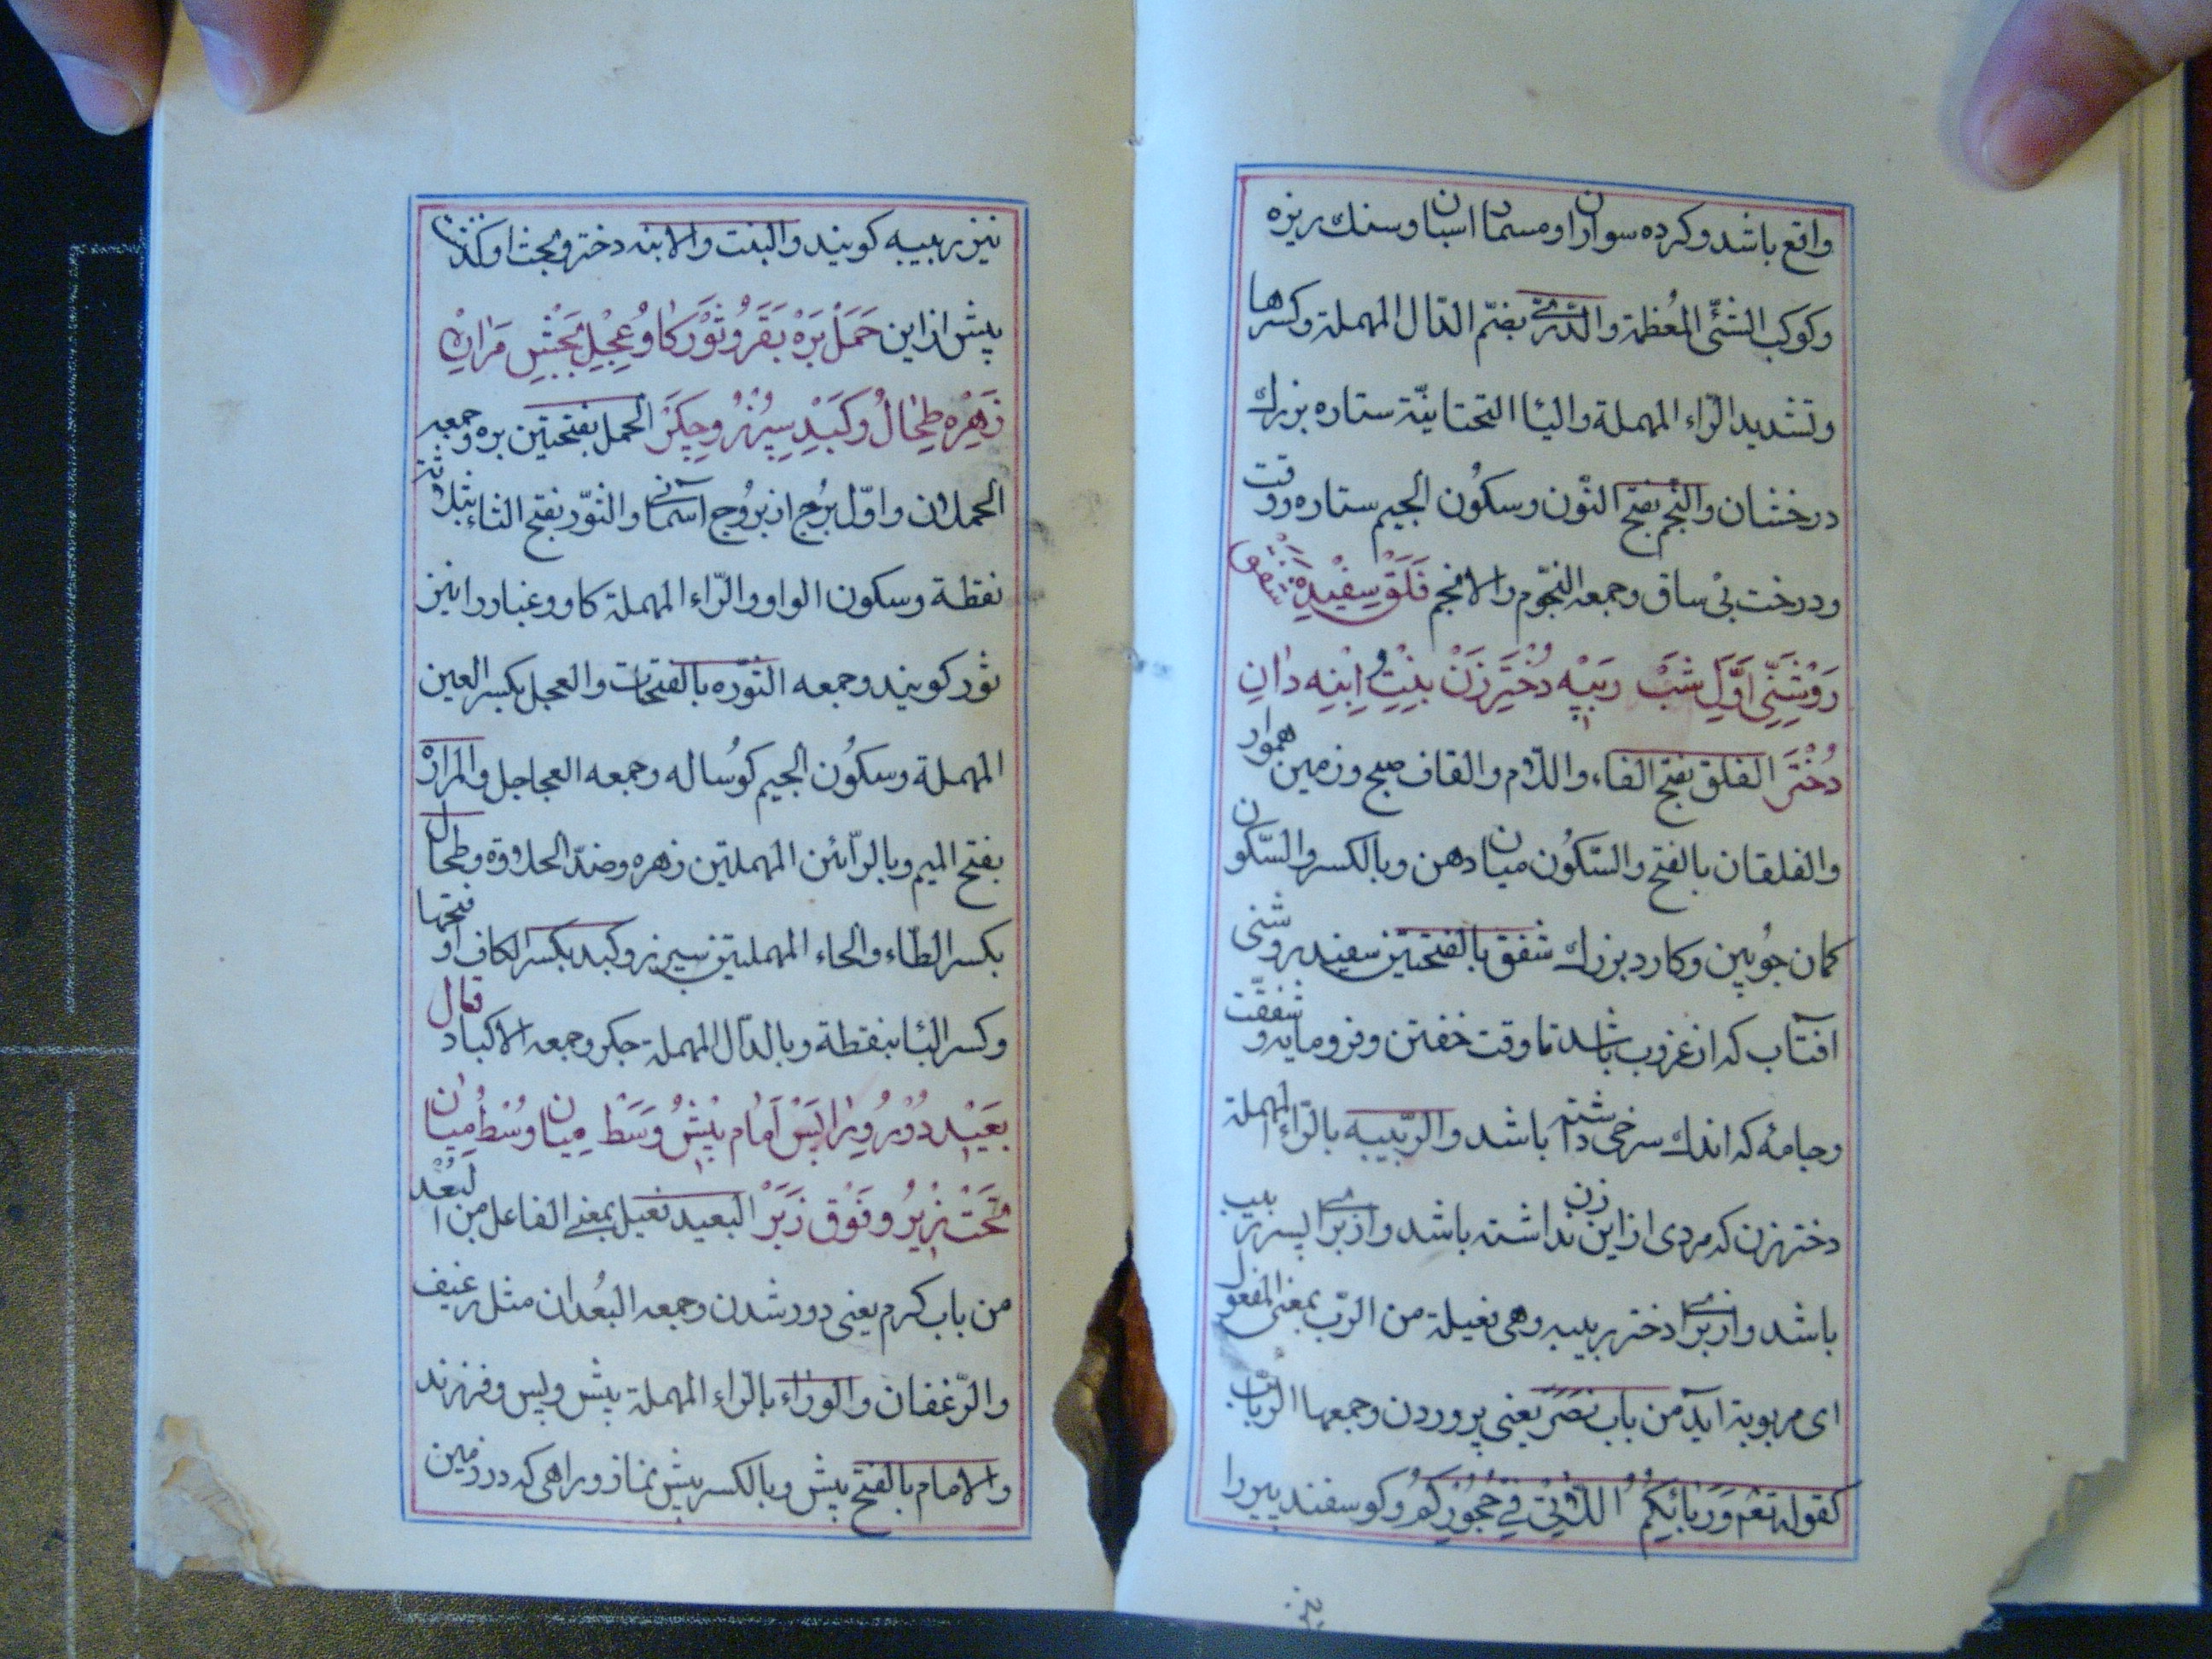 واقع باشد وکرده سواران اومسمان اسبان وسنك ریزه
وکوکب الشئی المعظمة والدّرّی بضمّ الدّال المهملة وکسرها
وتشدید الرّاء المهملة والیاا التحتانیّة ستاره بزرك
درخشان والنجم بفتح النّون وسکُون الجیم ستاره ووقت
ودرخت بی ساق وجمعه النجّوم والانجم فَلَقْ سِفْیْدِهٔ شفق
رَوْشَنِّی اَوَّلِ شَبْ رَبَیْبِه دُخْتَرِ زَنْ بِنْتُ وُ اِبْنِه دٰانِ
دُخْتَرْ الفلق بفتح الفاء واللّام والقاف صبح وزمین هموار
والفلقان بالفتح والسّکُون میان دهن وبالکسر والسّکون
کمان جوُبین وکارد بزرك شفق بالفتحتین سفید روشنی
افتآب که از غروب باشد تا وقت خفتن وفرومایه و شفقّت
وجامهٔ که اندك سرخی داشته باشد والرّبیبه بالرّاء المهملة
دختر زن که مردی از این زن نداشته باشد وازبرای پسر ربیب
باشد وازبرای دختر ربیبه وهی فعیلة من الرّب بمعنی المفعول
ای مربوبة ایدآ من باب نَصَرَ یعنی پروردن وجمعها الربائب
کقوله تعم وَرَبٰائِبُکُمُ اللّاتِیْ فِیْ حُجُوْرِکُمْ وکوسفند بیررا
نیز ربیبه کویند والبنت والابنه دختر وبحث او کذشت
پیش ازاین حَمَلْ بَرَهْ بَقَرُ وثَوْر کٰاو عِجْلِ بَخْشِ مَرٰارَهْ
زَهْرِه طِحٰالُ وکَبَدْ سِپُرْزُ وجِکَرْ الحمل بفتحتین بره وجمعه
الحملان واوّل برُج از بروُج آسمانی والثوّر بفتح الثاء بثلاثة
نقطة وسکون الواو والرّاء المهملة کاو وغبار را نیز
ثور کویند وجمعه الثوّره بالفتحات والعجل بکسر العین
المهملة وسکوُن الجیم کوُساله وجمعه العجاجل والمرارهْ
بفتح المیم وبالرّائین المهملتین زهره وضدّ الحلاوة وطحال
بکسر الطّاء والحاء المهملتین سپرز وکبد بکسر الکاف او فتحها
وکسر البٰا بنقطة وبالدّال المهملة جکر وجمعه الاکباد قال
بَعَیْدْ دُوْرُ وَرٰا پَسْ اَمٰام پیْشُ وَسَطْ مِیٰان وُسْطُ مِیٰان
تَحَتْ زِیْرُ وفَوْق زَبَرْ البعید فعیل بمعنی الفاعل من البُعْد
من باب کرم یعنی دور شدن وجمعه البُعُدان مثل رغیف
والرّغفان والورٰاء بالرّاء المهملة پیش وپس وفرزند
والامام بالفتح پیش وبالکسر پیش نماز وراهی که در زمین